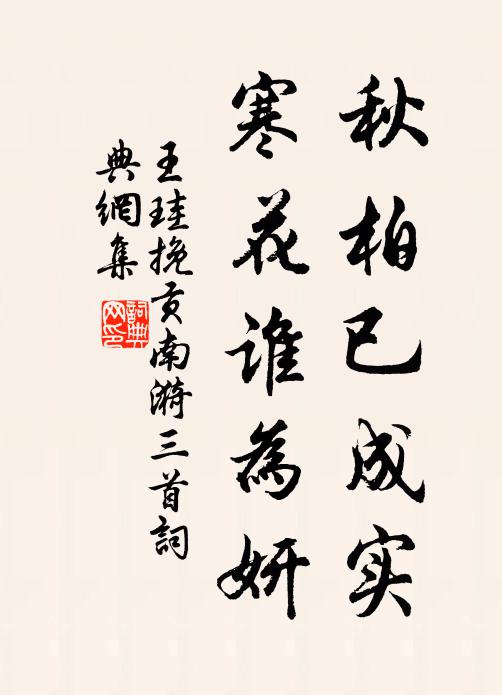 秋柏已成实
寒花谁為妍
王珪挽贡南漪三首詞
典網集
詞典
网印